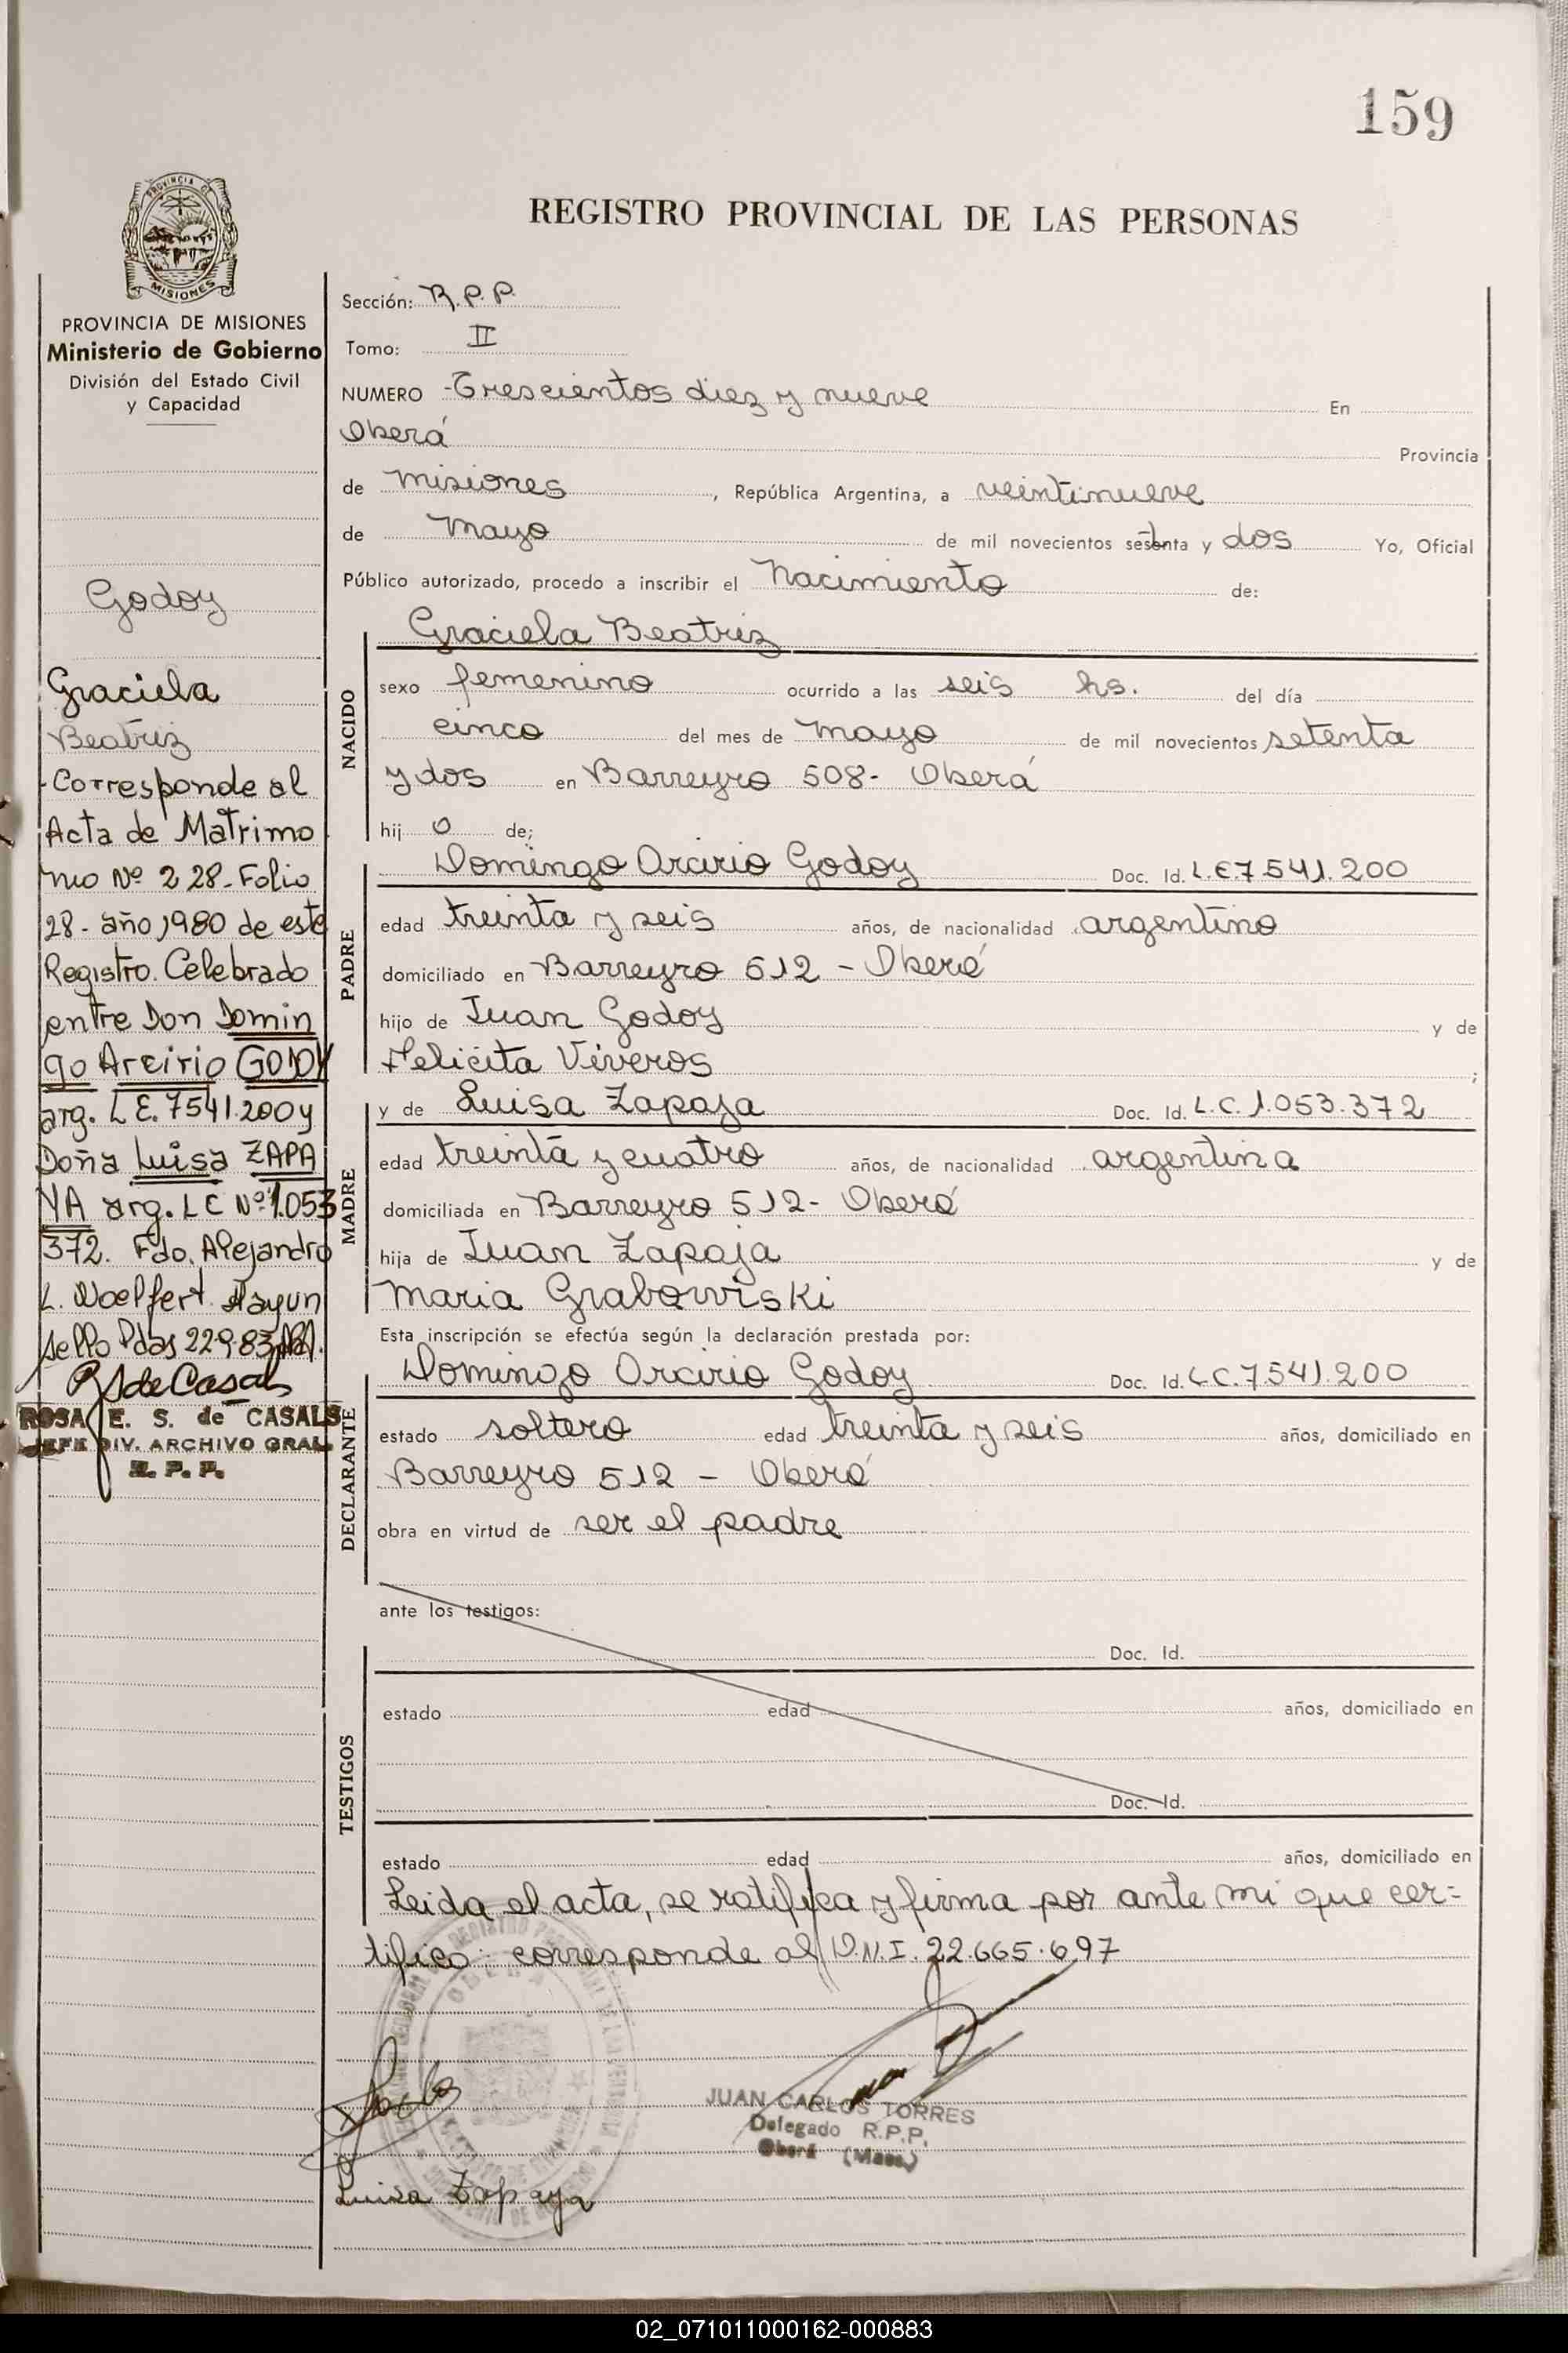 159
REGISTRO PROVINCIAL DE LAS PERSONAS
MISIONES
PROVINCIA DE MISIONES
Ministerio de Gobierno
División del Estado Civil
y Capacidad
Godoy
Graciela
Beatriz
-Corresponde al
Acta de Matrimo
nio Nº 228-Folio
28- año 1980 de este
Registro. Celebrado
entre Don Domin
go Arcirio GODOY
arg. L.E. 7541.200 y
Doña Luisa ZAPA
YA arg. LC Nº 1.053
372. Fdo. Alejandro
L. Woelfert. Hay un
sello Pdas 22-9-83
RSdeCasals
ROSA E. S. de CASALS
JEFE DIV. ARCHIVO GRAL.
R. P. P.
Sección: R.P.P.
Tomo: II
NUMERO -Trescientos diez y nueve En
Oberá Provincia
de Misiones, República Argentina, a veintinueve
de Mayo de mil novecientos setenta y dos Yo, Oficial
Público autorizado, procedo a inscribir el Nacimiento de:
NACIDO
Graciela Beatriz
sexo femenino ocurrido a las seis hs. del día
cinco del mes de Mayo de mil novecientos setenta
y dos en Barreyro 508- Oberá
hij o de;
PADRE
Domingo Orcirio Godoy Doc. Id. L.E.7.541.200
edad treinta y seis años, de nacionalidad argentino
domiciliado en Barreyro 512 - Oberá
hijo de Juan Godoy y de
Felicita Viveros ;
MADRE
y de Luisa Zapaja Doc. Id. L.C.1.053.372
edad treinta y cuatro años, de nacionalidad argentina
domiciliada en Barreyro 512- Oberá
hija de Juan Zapaja y de
Maria Grabowiski
Esta inscripción se efectúa según la declaración prestada por:
DECLARANTE
Domingo Orcirio Godoy Doc. Id. L.C.7.541.200
estado soltero edad treinta y seis años, domiciliado en
Barreyro 512 - Oberá
obra en virtud de ser el padre
ante los testigos:
TESTIGOS
Doc. Id.
estado edad años, domiciliado en
Doc. Id.
estado edad años, domiciliado en
Leida el acta, se ratifica y firma por ante mi que cer=
tifico: corresponde al D.N.I. 22.665.697
JUAN CARLOS TORRES
Delegado R.P.P.
Oberá (Mnes.)
Luisa Zapaya
02_071011000162-000883